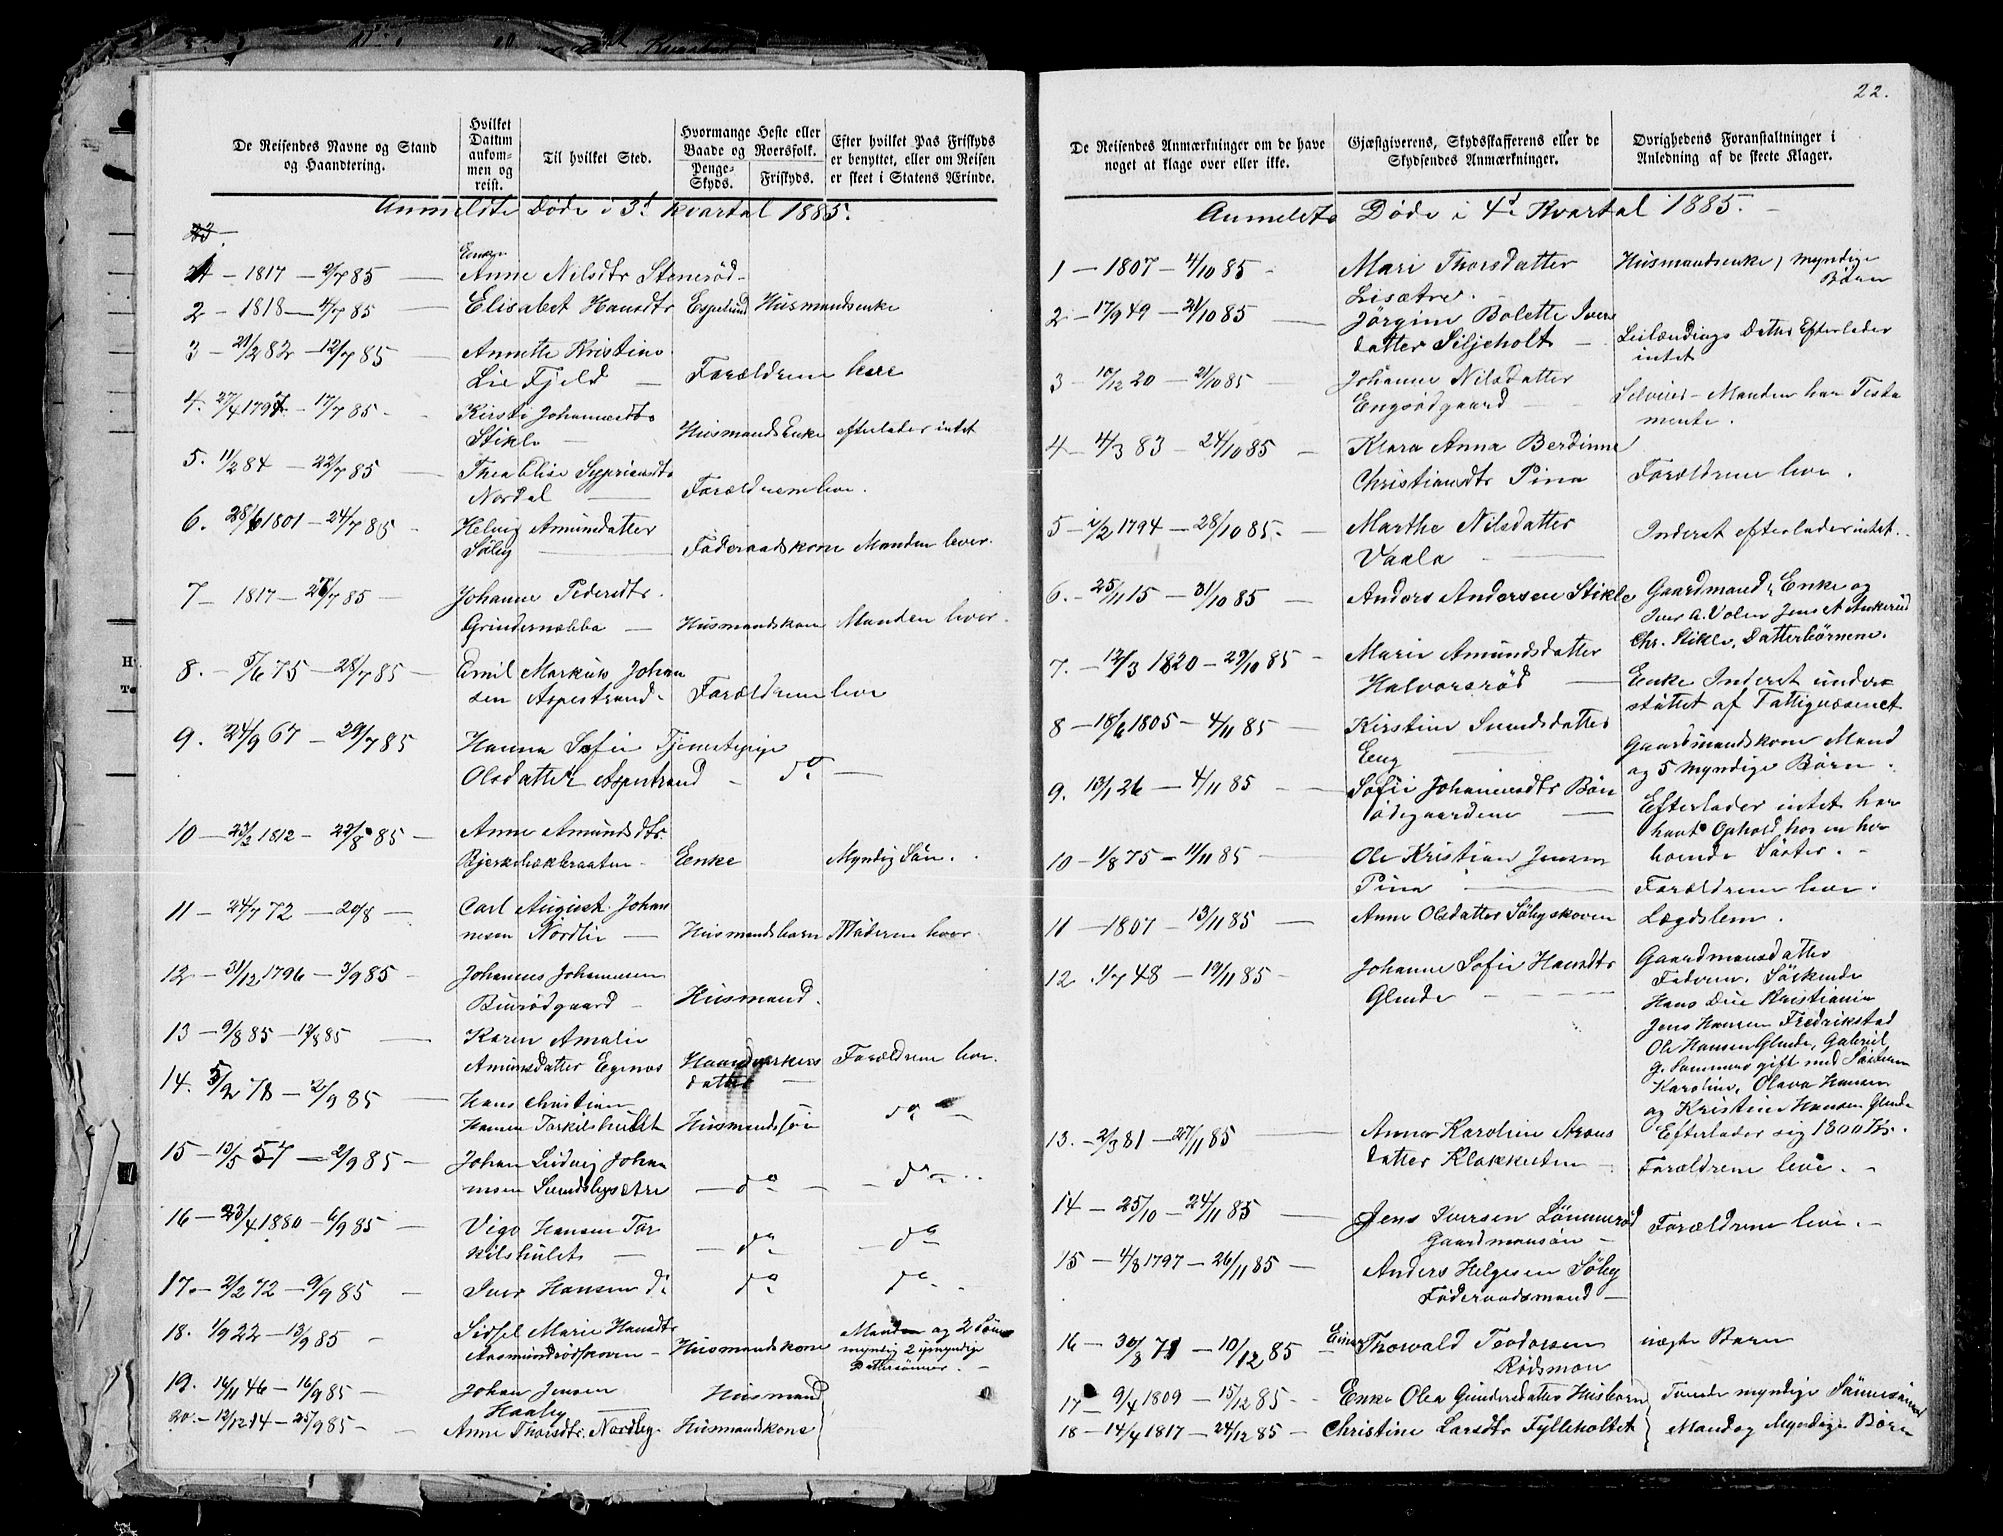 22.
De Reisendes Navne og Stand og Haandtering.
Hvilket Datum ankommen og reist.
Til hvilket Sted.
Hvormange Heste eller Baade og Roersfolk.
Penge-Skyds.
Friskyds.
Efter hvilket Pas Friskyds er benyttet, eller om Reisen er skeet i Statens Ærinde.
Anmeldte Døde i 3d Kvartal 1885.
1 - 1817 - 2/7 85 - Enke Anne Nilsdtr Stenerød
2 - 1818 - 4/7 85 - Elisabet Hansdtr Espelund Husmandsenke
3 - 21/2 82 - 12/7 85 - Annette Kristine
Lie Fjeld - Forældrene leve
4. 27/4 1797 - 17/7 85 - Kirsti Johannesdtr
Stikle - Husmands Enke efterlader intet
5. 11/2 84 - 22/7 85 - Thea Elise Sypriansdtr
Nordal - Forældrene leve.
6. 28/6 1801 - 24/7 85 - Helvig Amundatter
Søby - Føderaadskone Manden lever.
7 - 1817 - 27/7 85 - Johanne Pedersdtr.
Grindernæbba - Husmandskone Manden lever.
8. - 5/6 75 - 28/7 85 - Emil Markus Johan
sen Aspestrand - Forældrene leve
9. 24/9 67 - 29/7 85 - Hanna Sofie Tjenestepige
Olsdatter Aspestrand - do -
10 - 23/2 1812 - 22/8 85 - Anne Amundsdtr.
Bjerkebækbraaten - Enke Myndig Søn.
11 - 24/7 72 - 20/8 - Carl August Johan
nesen Nordlie - Husmandsbarn Moderen lever.
12 - 31/12 1796 - 3/9 85 - Johannes Johannesen
Buerødgaard - Husmand.
13 - 9/8 85 - 12/8 85 - Karen Amalie
Amundsdatter Egenes Haandverkers datter - Forældrene leve.
14. 5/2 78 - 2/9 85 - Hans Christian
Hansen Torkilshullet Husmandssøn do -
15 - 13/5 57 - 2/9 85 - Johan Ludvig Johan
nesen Sundsbysætre - do - - do -
16 - 23/4 1880 - 6/9 85 - Vigo Hansen Tor
kilshulet - - do - - do
17. - 2/2 72 - 9/9 85 - Iver Hansen do do do
18. 1/9 22 - 13/9 85 - Sidsel Marie Hansdtr
Aasmundrødskoven - Husmandskone Manden og 2 Sønner
myndig 2 umyndige
Dattersønner. -
19. 16/11 46 - 16/9 85 - Johan Jensen
Haaby - Husmand
20. - 12/12 14 - 25/9 85 - Anne Thorsdtr. Nordby - Husmandskone
De Reisendes Anmærkninger om de have noget at klage over eller ikke.
Gjæstgiverens, Skydsskafferens eller de Skydsendes Anmærkninger.
Øvrighedens Foranstaltninger i Anledning af de skeete Klager.
Anmeldte Døde i 4de Kvartal 1885. -
1 - 1807 - 4/10 85 - Mari Thorsdatter
Lisætre. Husmandsenke, myndige Børn
2 - 17/9 49 - 21/10 85 - Jørgine Bolette Ivers
datter Siljeholt - Leilændings Datter Efterlader intet
3 - 10/12 20 - 21/10 85 - Johanne Nilsdatter
Engsødgaard - Selveier - Manden har Testa
mente.
4 - 4/3 83 - 24/10 85 - Klara Anna Berdinne
Christiansdtr Pina Forældrene leve.
5 - 1/2 1794 - 28/10 85 - Marthe Nilsdatter
Vaala - Inderst efterlader intet.
6. - 25/11 15 - 31/10 85 - Anders Andersen Stikle Gaardmand, Enke og
Iver A. Volen Jens A Ankerud
Chr. Stikle, Datterbørnene.
7. - 12/3 1820 - 29/10 85 - Marie Amundsdatter
Halvorsrød - Enke Inderst under
støttet af Fattigvæsenet
8 - 18/6 1805 - 4/11 85 - Kirstine Sundsdatter
Eng - Gaardmandskone Mand
og 5 myndige Børn.
9. 13/1 26 - 4/11 85 - Sofie Johannesdtr Bøn
ødegaardene - Efterlader intet har
havt Ophold hos en her
boende Søster. -
10 - 1/8 75 - 11/11 85 - Ole Kristian Jensen
Pina - Forældrene leve.
11 - 1807 - 13/11 85 - Anne Olsdatter Søbyskoven Lægdslem.
12. 1/7 48 - 19/11 85 - Johanne Sofie Hansdtr
Glende - Gaardmansdatter
Faderen, Søskende
Hans Drie Kristiania
Jens Hansen Fredrikstad
Ole Hansen Glende, Gabriel
G. Sommero gift med Søsteren
Karoline, Olava Hansen
og Kristine Hansen Glende
Efterlader sig 1800 Kr.
13. - 2/3 81 - 27/11 85 - Anna Karoline Arons
datter Klokkesten - Forældrene leve. -
14 - 25/10 - 24/11 85 - Jens Iversen Lønnerød
Gaardmansøn - Forældrene leve. -
15 - 4/8 1797 - 26/11 85 - Anders Helgesen Søby
Føderaadsmand -
16 - 30/8 71 - 10/12 85 - Einar Thorvald Teodorsen
Rødsmon uægte Barn
17 - 9/4 1809 - 15/12 85 - Enke Olea Gundersdatter Husborn Tvende myndige Sønnesønner
18 - 14/4 1817 - 24/12 85 - Christine Larsdtr Fylleholtet Mand og Myndige Børn